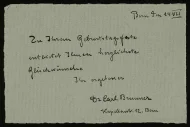 Bern den 11 VII
Zu Ihrem Geburtstagsfeste
entbietet Ihnen herzlichste
Glückwünsche
Ihr ergebener
Dr Carl Brunner
Bern